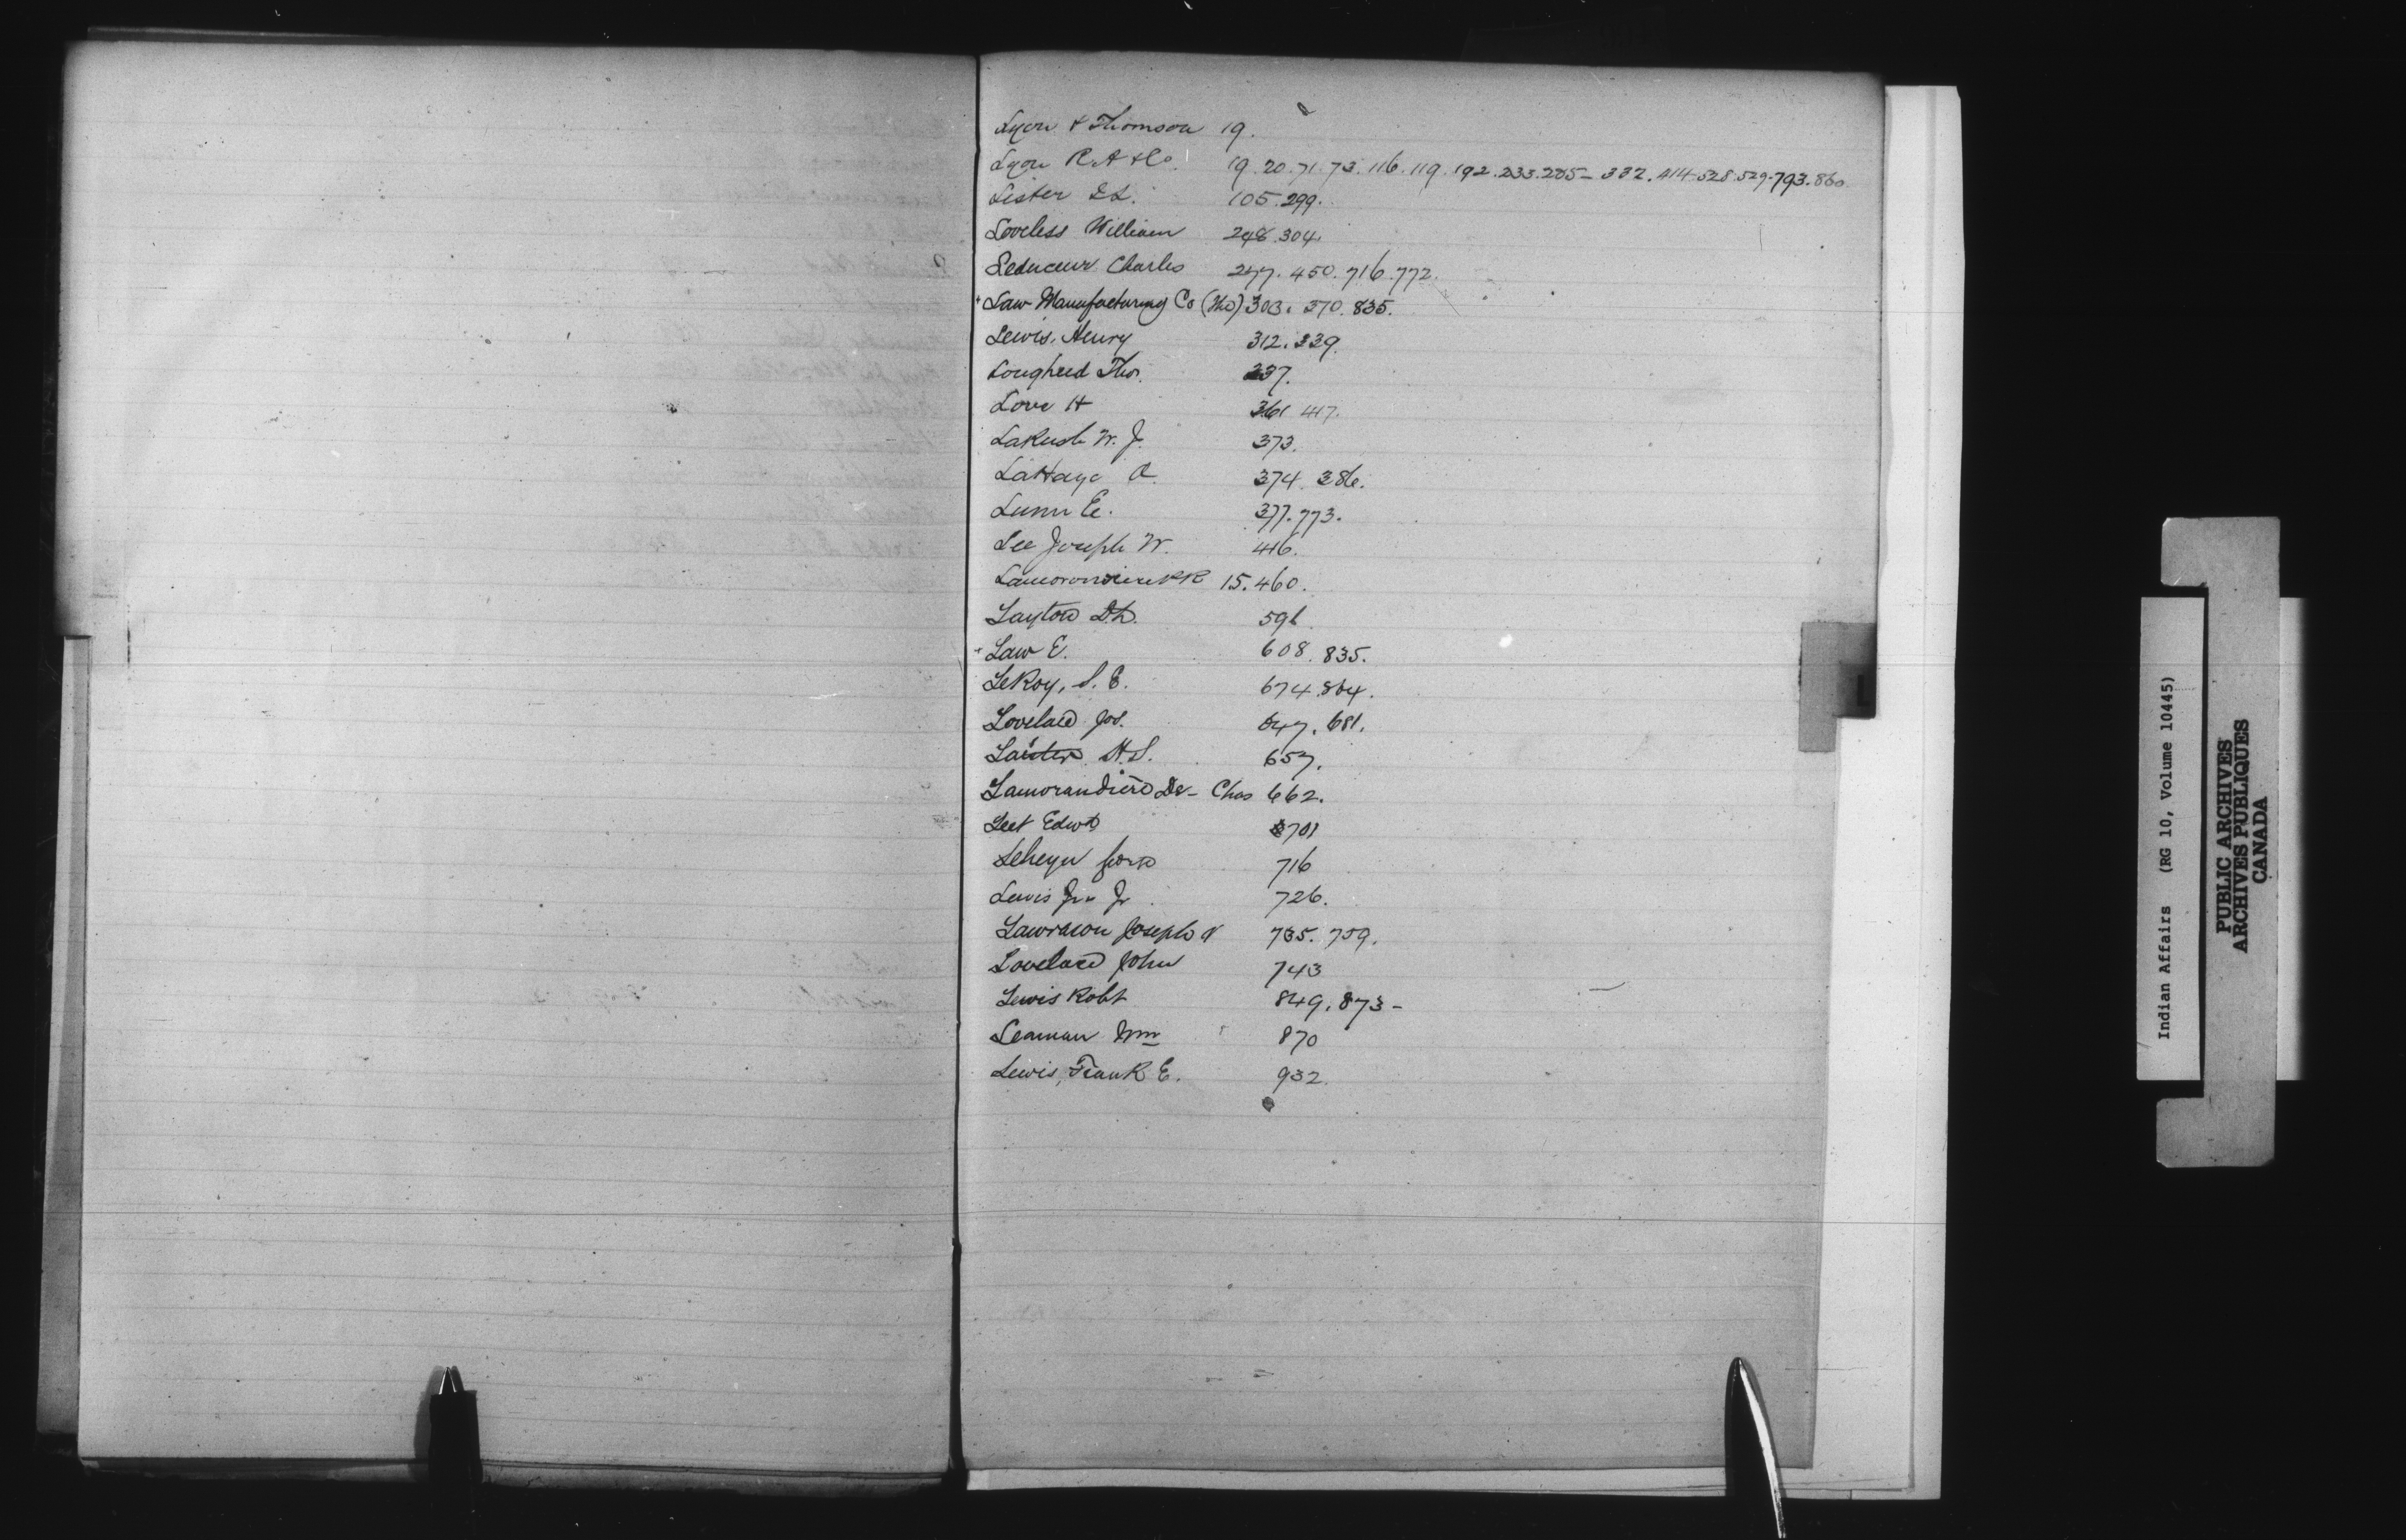 Lyon & Thomson 19.
Lyon R.A & Co. 19. 20. 71. 73. 116. 119. 192. 233. 285 - 332. 414 - 528. 529. 793. 860
Lister 105. 299.
Loveless William 248. 304.
Leduceur Charles 277. 450. 716. 772.
Law Manufacturing Co (The) 303. 370. 835.
Lewis, Henry 312. 339.
Lougheed Thos. 337.
Love H 361 417.
LaRush W. J. 373.
LaHaye A. 374. 386.
Lunn E. 377. 773.
Lee Joseph W. 416.
15. 460.
Layton 596
Law E. 608. 835.
LeRoy, S. E. 674. 864.
Lovelace Jos. 647. 681.
H. S. 657.
Lamorandiere De - Chas 662.
Leet Edwd 701
716
Lewis Jno Jr 726.
Lawrason Joseph 735. 759.
Lovelace John 743
Lewis Robt 849. 873 -
Leaman Wm 870
Lewis, Frank E. 932.
L
Indian Affairs (RG 10, Volume 10445)
PUBLIC ARCHIVES
ARCHIVES PUBLIQUES
CANADA